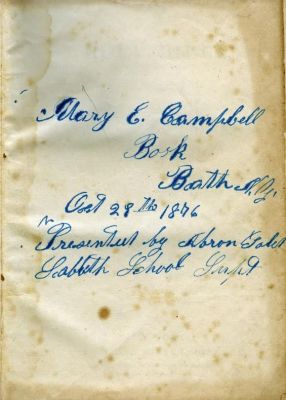 Mary E. Campbell
Book
Bath N.Y.
Oct 28th 1876
Presented by Abron
Sabbeth School Supt